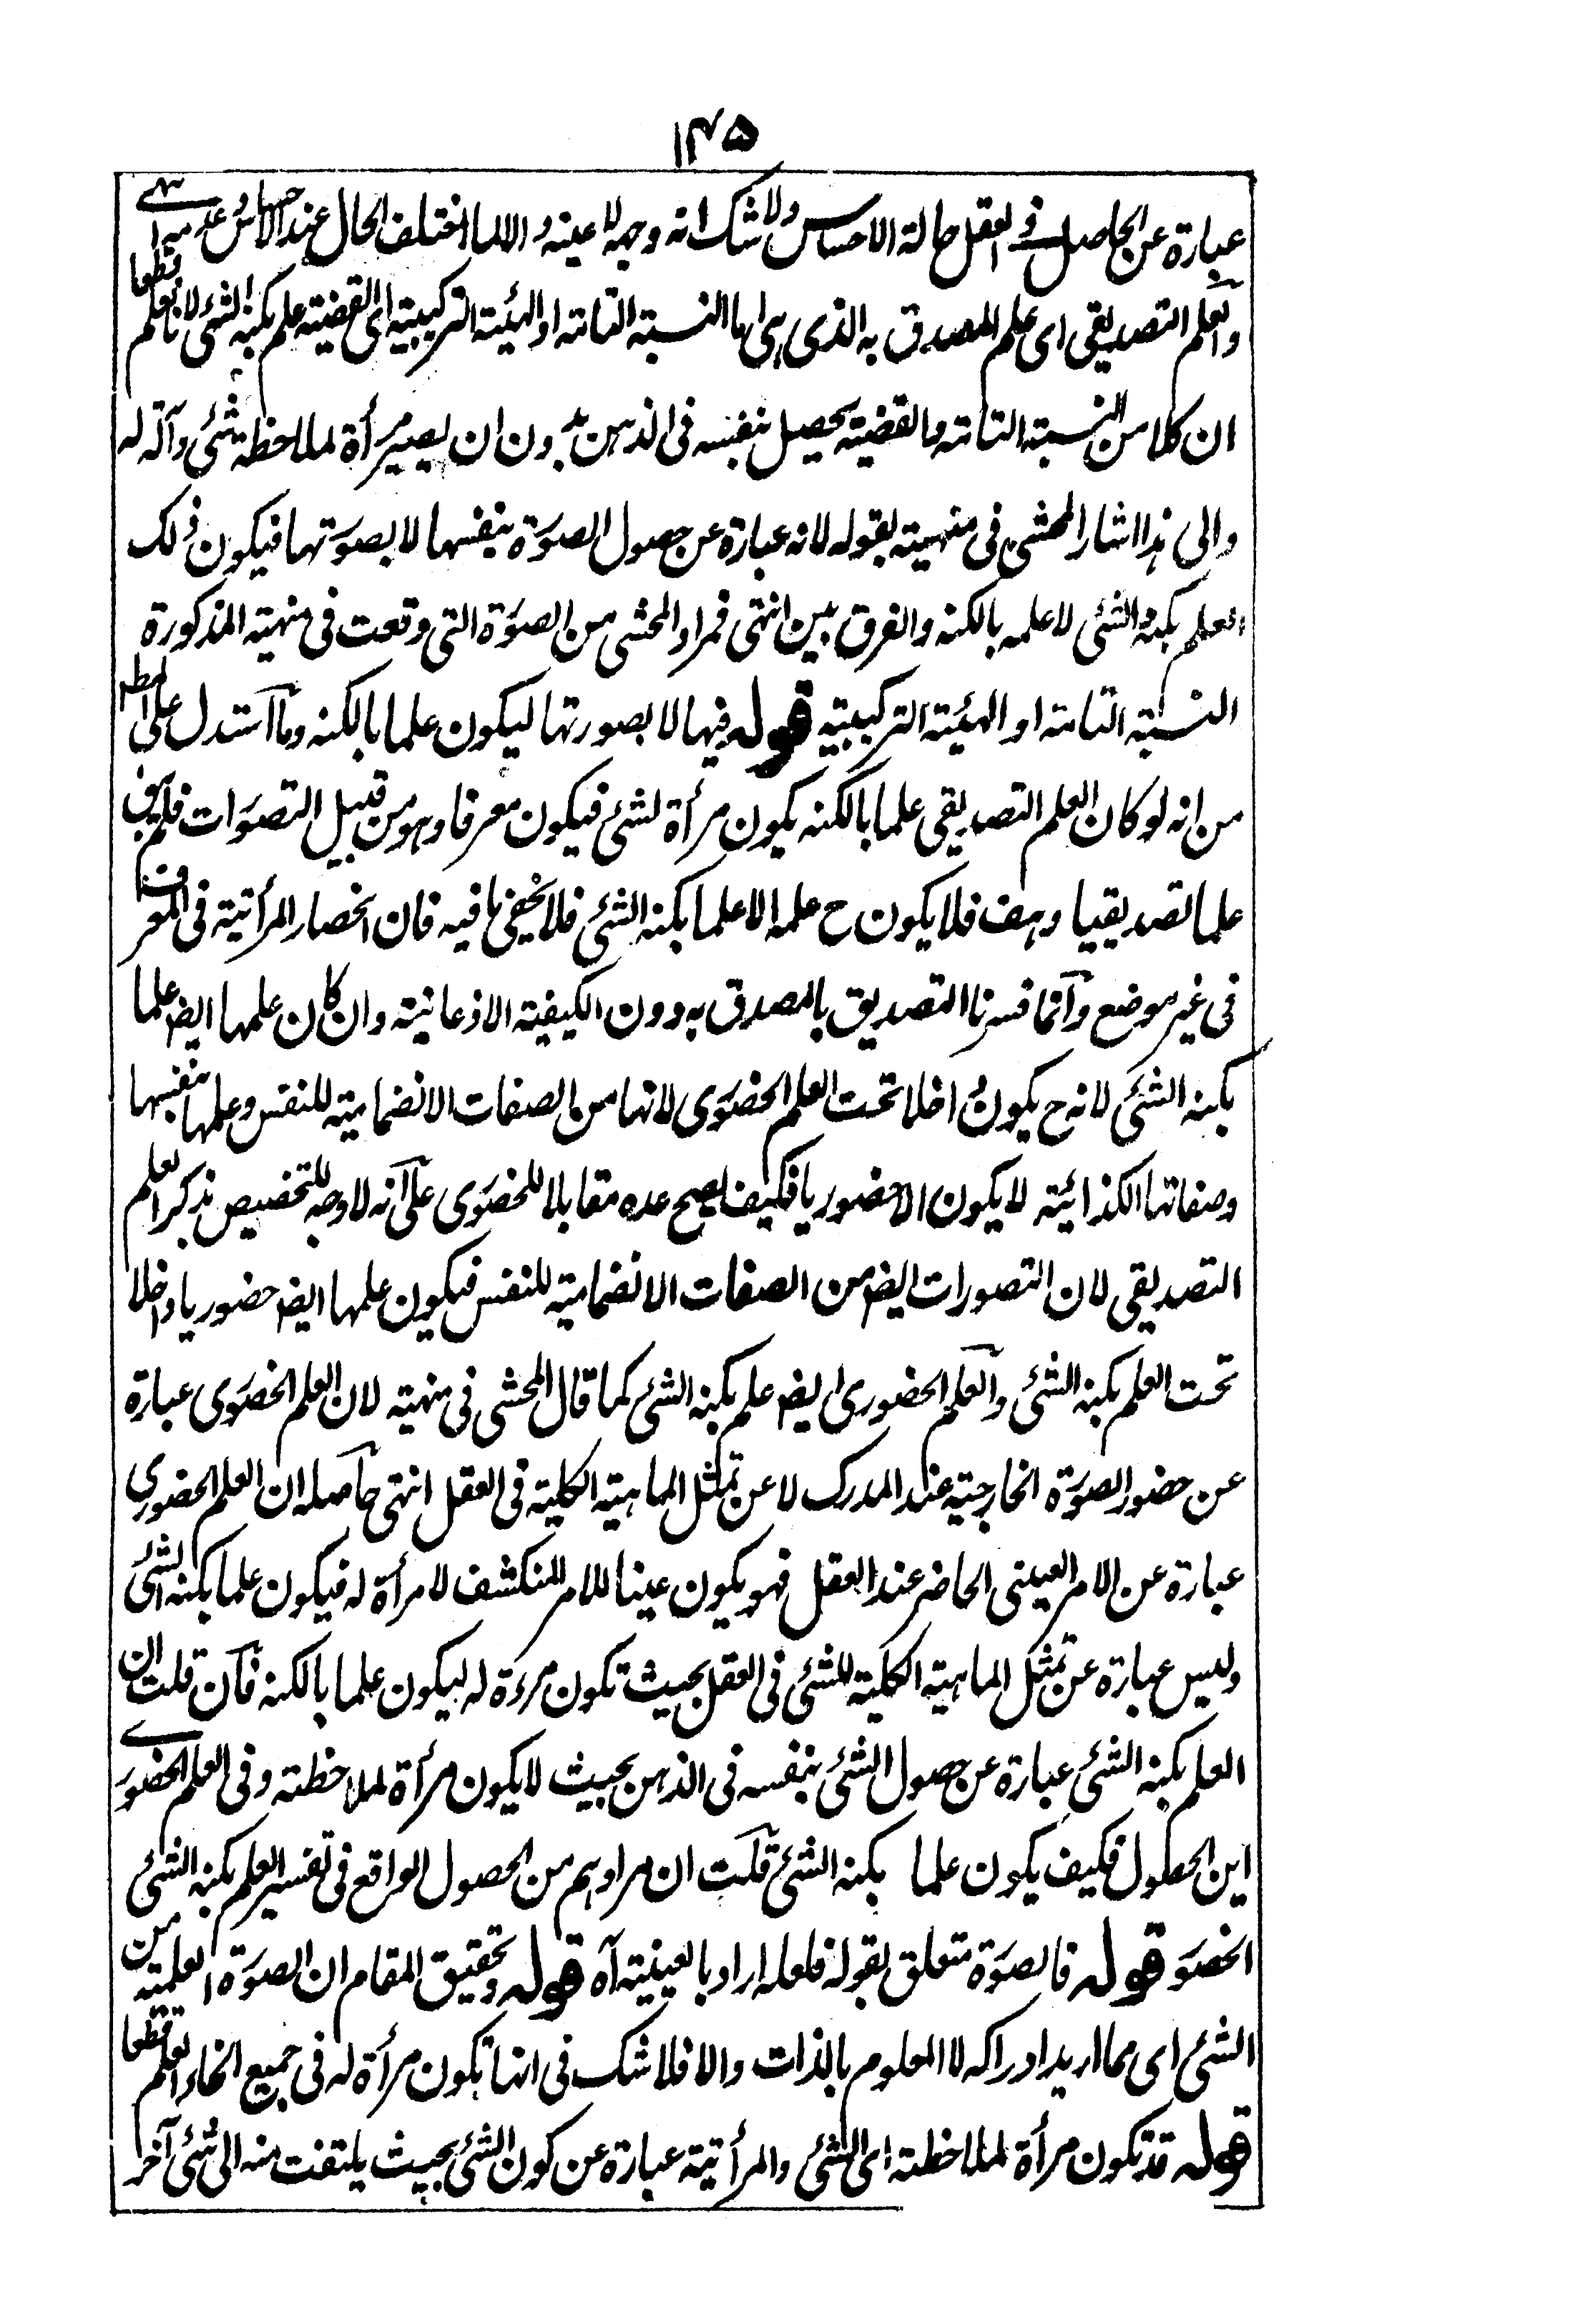 ۱۴۵
عبارة عن الحاصل فى العقل حالة الاحساس ولا شك انه وجهه لا عينه والا لما اختلف الحال عند الاحساس
والعلم التصديقى اى علم المصدق به الذى هى اما النسبة التامة او الهيئة التركيبية اى القضية علم بكنه الشئ لانا نعلم قطعا
ان كلا من النسبة التامة والقضية يحصل بنفسه فى الذهن بدون ان يصير مرأة لملاحظة شئ وآلة له
والى هذا اشار المحشى فى منهيته بقوله لانه عبارة عن حصول الصورة بنفسها لا بصورتها فيكون ذلك
العلم بكنه الشئ لا علمه بالكنه والفرق بين انتهى فمراد المحشى من الصورة التى وقعت فى منهية المذكورة
النسبة التامة او الهيئة التركيبية قوله فيها لا بصورتها ليكون علما بالكنه وما استدل على المط
من انه لو كان العلم التصديقى علما بالكنه يكون مرأة لشئ فيكون معرفا وهو من قبيل التصورات فلم يبق
علما تصديقيا وهف فلا يكون ح علمه الا علما بكنه الشئ فلا يخفى ما فيه فان انحصار المرأتية فى المعرف
فى غير موضع وانما فسرنا التصديق بالمصدق به دون الكيفية الاذعانية وان كان علمها ايض علما
بكنه الشئ لانه ح يكون داخلا تحت العلم الحضورى لانها من الصفات الانضمامية للنفس وعلمها بنفسها
وصفاتها الكذائية لا يكون الا حضوريا فكيف يصح عده مقابلا للحضورى على انه لا وجه للتخصيص بذكر العلم
التصديقى لان التصورات ايض من الصفات الانضمامية للنفس فيكون علمها ايض حضوريا داخلا
تحت العلم بكنه الشئ والعلم الحضورى ايض علم بكنه الشئ كما قال المحشى فى منهية لان العلم الحضورى عبارة
عن حضور الصورة الخارجية عند المدرك لا عن تمثل الماهية الكلية فى العقل انتهى حاصله ان العلم الحضورى
عبارة عن الامر العينى الحاضر عند العقل فهو يكون عينا للامر المنكشف لا مرأة له فيكون علما بكنه الشئ
وليس عبارة عن تمثل الماهية الكلية للشئ فى العقل بحيث تكون مرءة له ليكون علما بالكنه فان قلت ان
العلم بكنه الشئ عبارة عن حصول الشئ بنفسه فى الذهن بحيث لا يكون مرأة لملاحظته وفى العلم الحضورى
اين الحصول فكيف يكون علما بكنه الشئ قلت ان مرادهم من الحصول الواقع فى تفسير العلم بكنه الشئ
الحضور قوله فالصورة متعلق بقوله فلعله اراد بالعينية آه قوله وتحقيق المقام ان الصورة العلمية من
الشئ اى مما اريد ادراكه لا المعلوم بالذات والا فلا شك فى انها تكون مرأة له فى جميع انحاء العلم قطعا
قوله قد تكون مرأة لملاحظته اى الشئ والمرأتية عبارة عن كون الشئ بحيث يلتفت منه الى شئ آخر